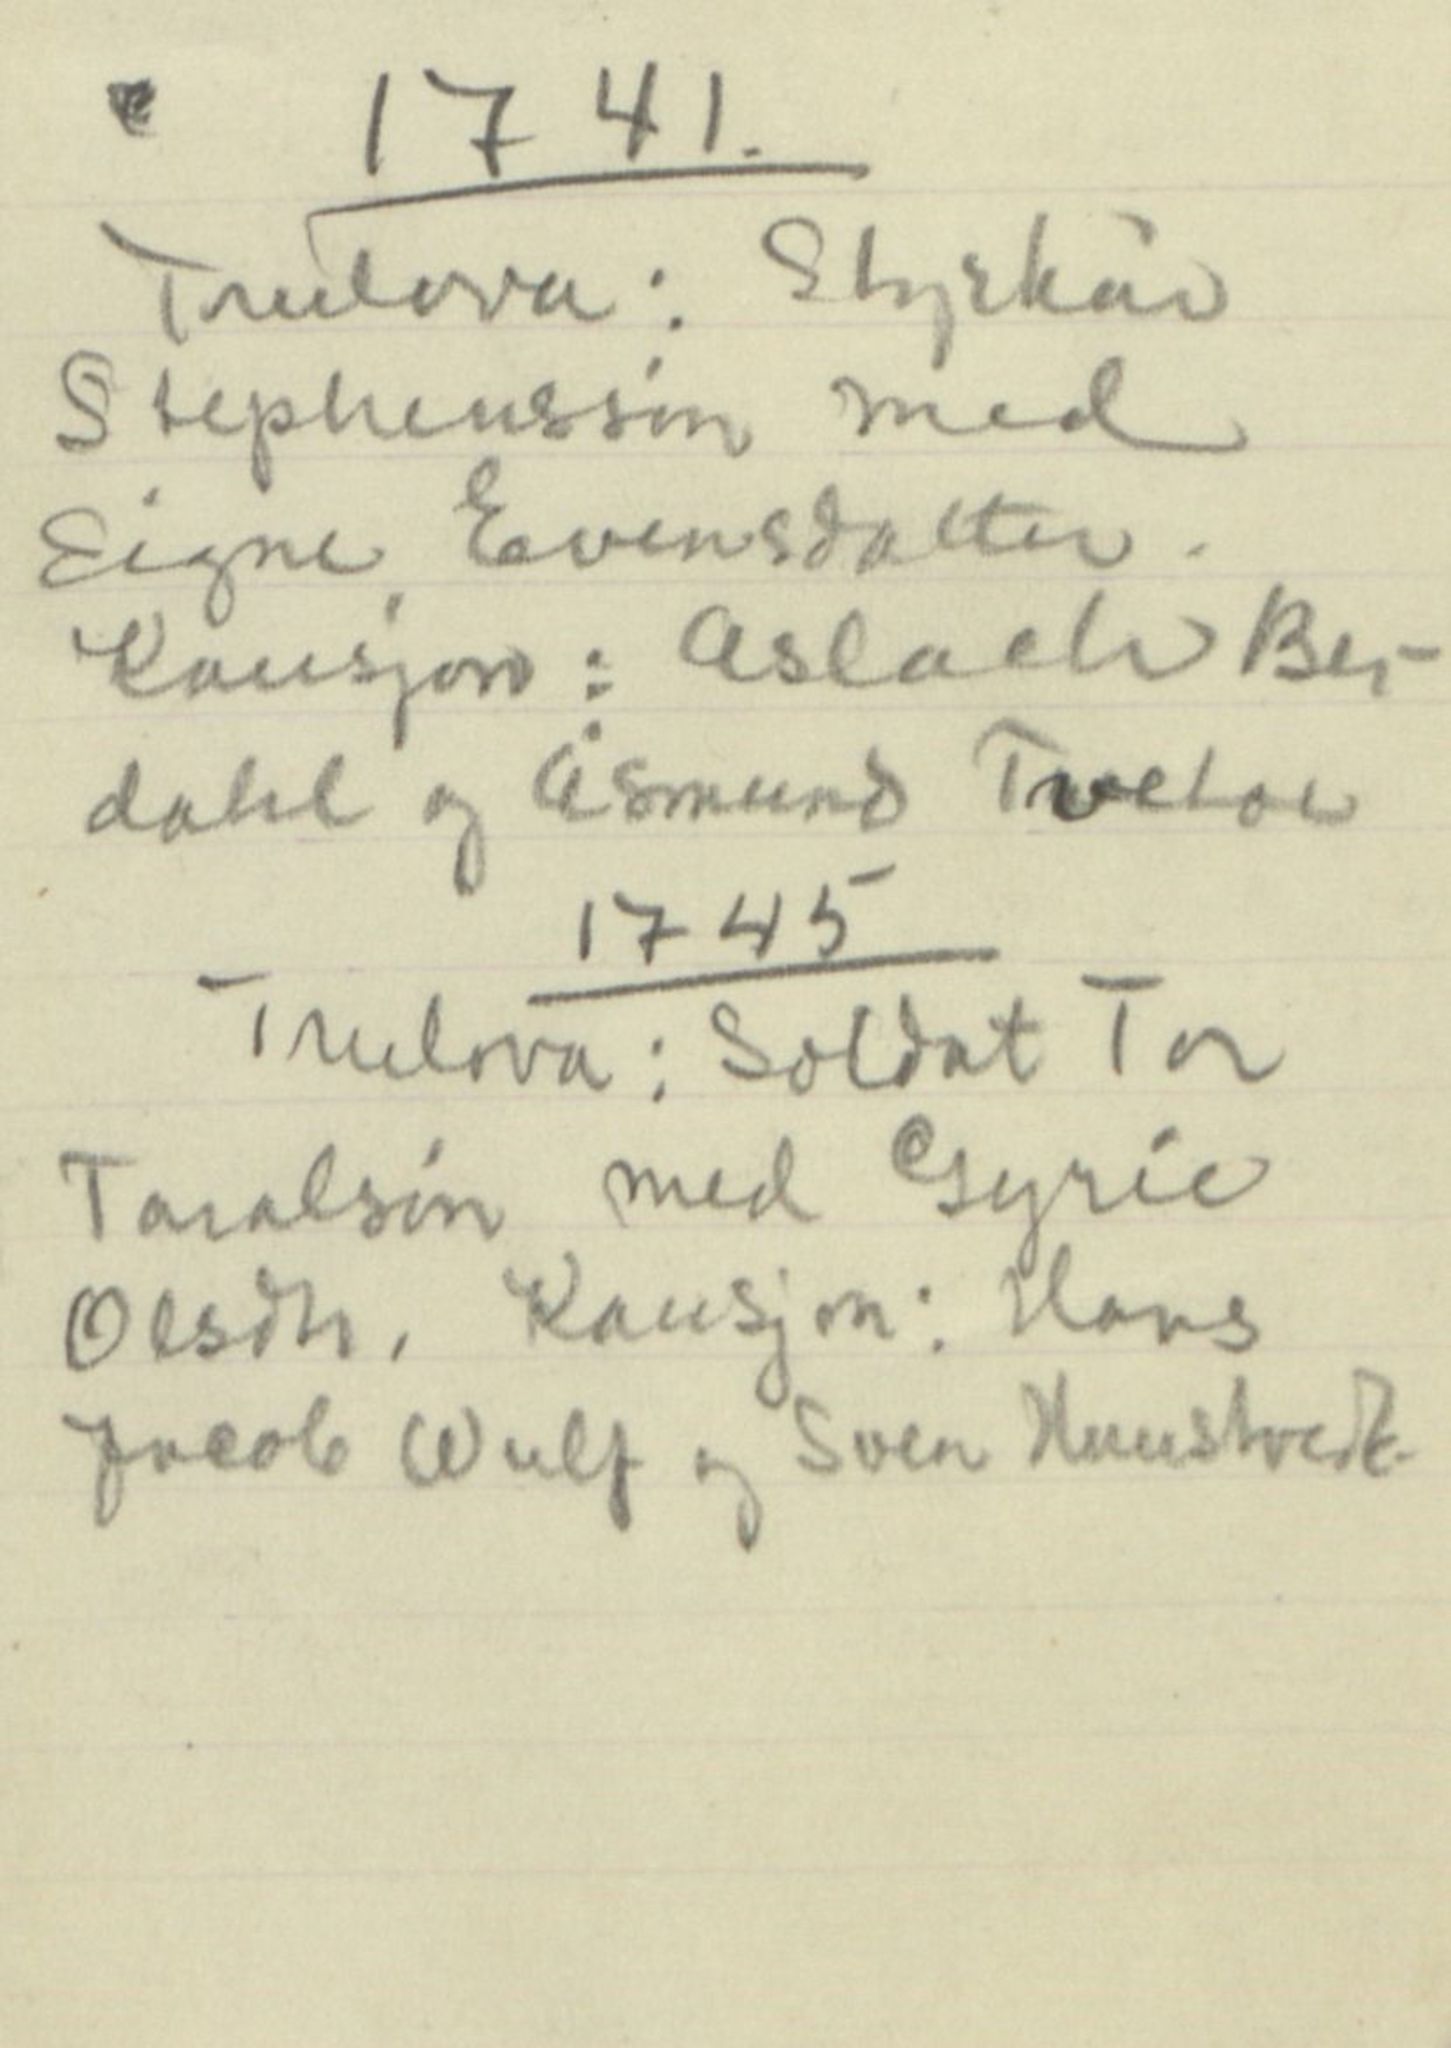 1741.
Trulova: Styrkår
Stephenssøn med
Eigne Evensdatter.
Kausjon: Aslach Ber-
dahl og Åsmund Tvetoe
1745
Trulova: Soldat Tor
Taralsøn med Gyrie
Olsdtr. Kausjon: Hans
Jacob Wulf og Sven Haustvedt.